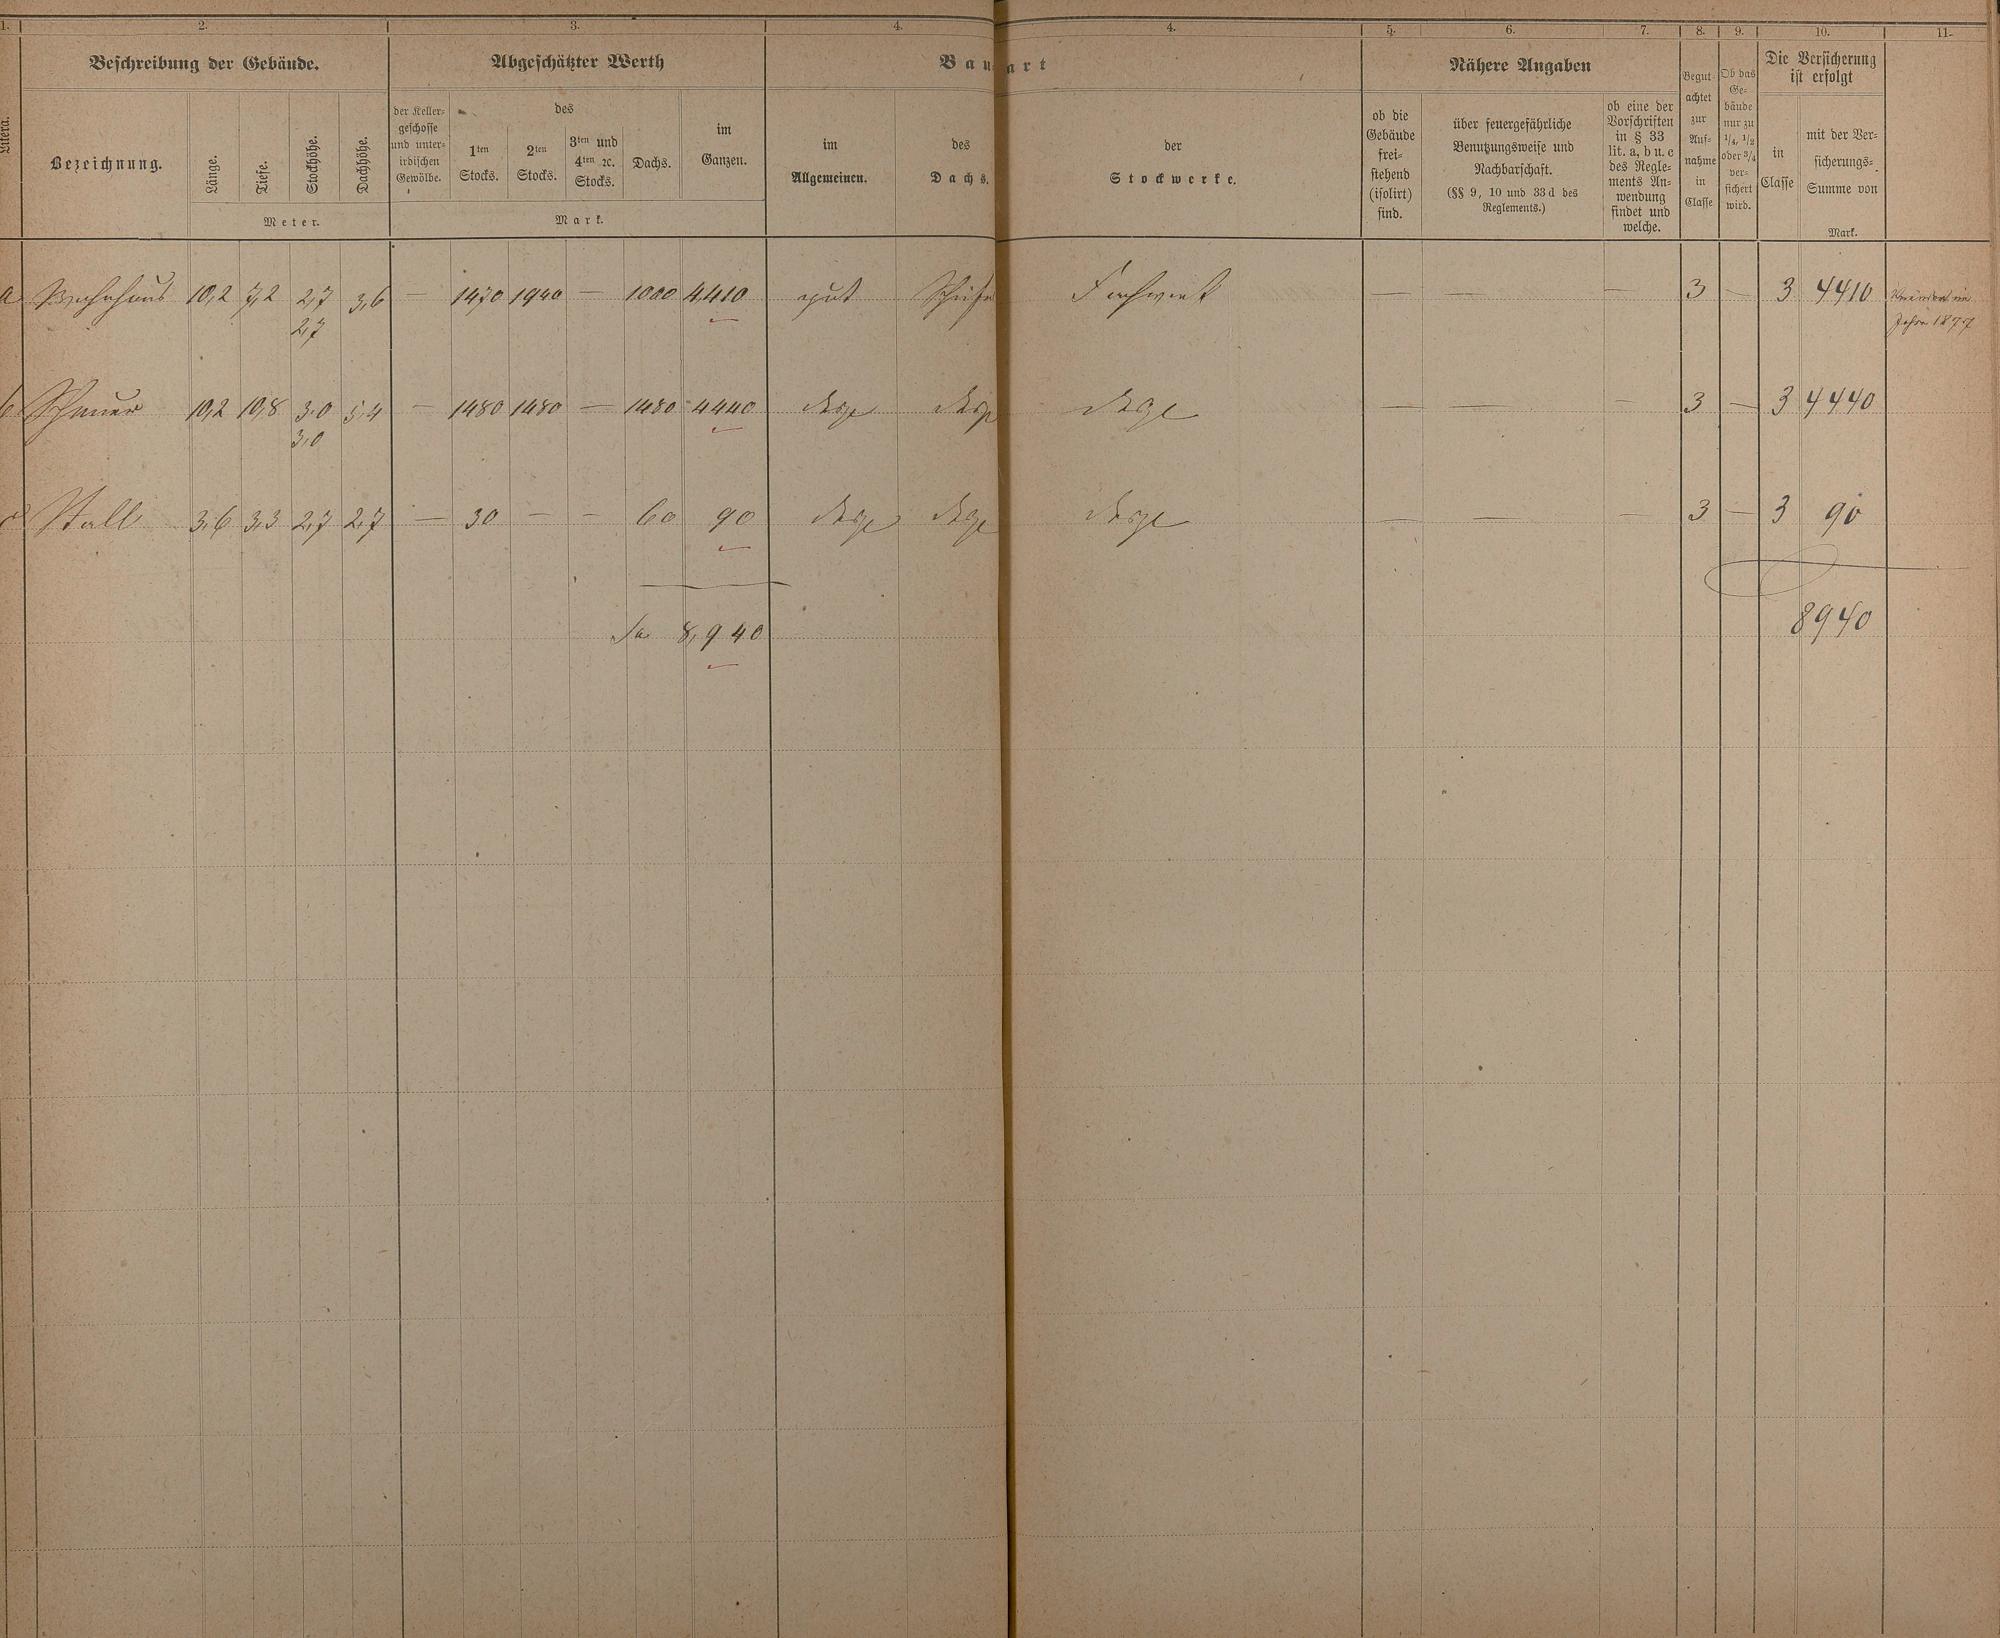 1. 2. 3. 4. 4. 5. 6. 7. 8. 9. 10. 11.
Beschreibung der Gebäude. Abgeschätzter Werth Bauart Nähere Angaben Die Versicherung ist erfolgt
Litera.
Bezeichnung.
Länge.
Tiefe.
Stockhöhe.
Dachhöhe.
Meter.
der Keller-
geschosse
und unter-
irdischen
Gewölbe.
des
1ten
Stocks.
2ten
Stocks.
3ten und
4ten ꝛc.
Stocks.
Dachs.
im
Ganzen.
Mark.
im
Allgemeinen.
des
Dachs.
der
Stockwerke.
ob die
Gebäude
frei-
stehend
(isolirt)
sind.
über feuergefährliche
Benutzungsweise und
Nachbarschaft.
(§§ 9, 10 und 33 d des
Reglements.)
ob eine der
Vorschriften
in § 33
lit. a, b u. c
des Regle-
ments An-
wendung
findet und
welche.
Begut-
achtet
zur
Auf-
nahme
in
Classe
Ob das
Ge-
bäude
nur zu
1/4, 1/2
oder 3/4
ver-
sichert
wird.
in
Classe
mit der Ver-
sicherungs-
Summe von
Mark.
a Wohnhaus 10,2 7,2 2,7 3,6 — 1470 1940 — 1000 4410 gut Fachwerk — — — 3 — 3 4410
2,7 Jahre 1877
b Scheuer 10,2 10,8 3,0 5,4 — 1480 1480 — 1480 4440 desgl desgl desgl — — — 3 — 3 4440
3,0
c Stall 3,6 3,3 2,7 2,7 — 30 — — 60 90 desgl desgl desgl — — — 3 — 3 90
Sa 8,940 8940